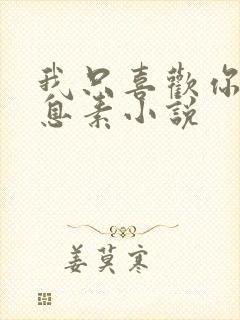 我只喜歡你
息素小說
姜莫寒